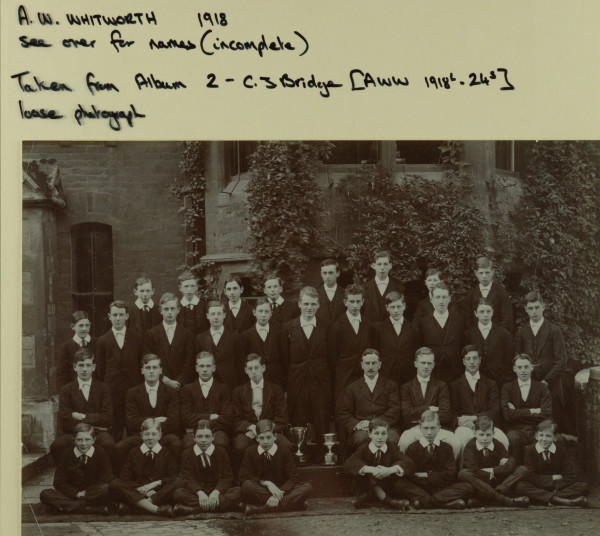 A. W. WHITWORTH 1918
see over for names (incomplete)
Taken from Album 2 - C. J Bridge [AWW 1918L - 24S]
loose photograph